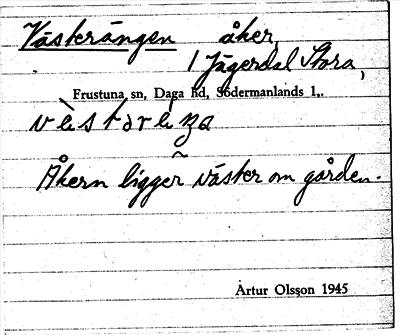 Västerängen åker,
1 Jägerdal Stora,
Frustuna sn, Daga hd, Södermanlands l.
Åkern ligger väster om gården.
Artur Olsson 1945